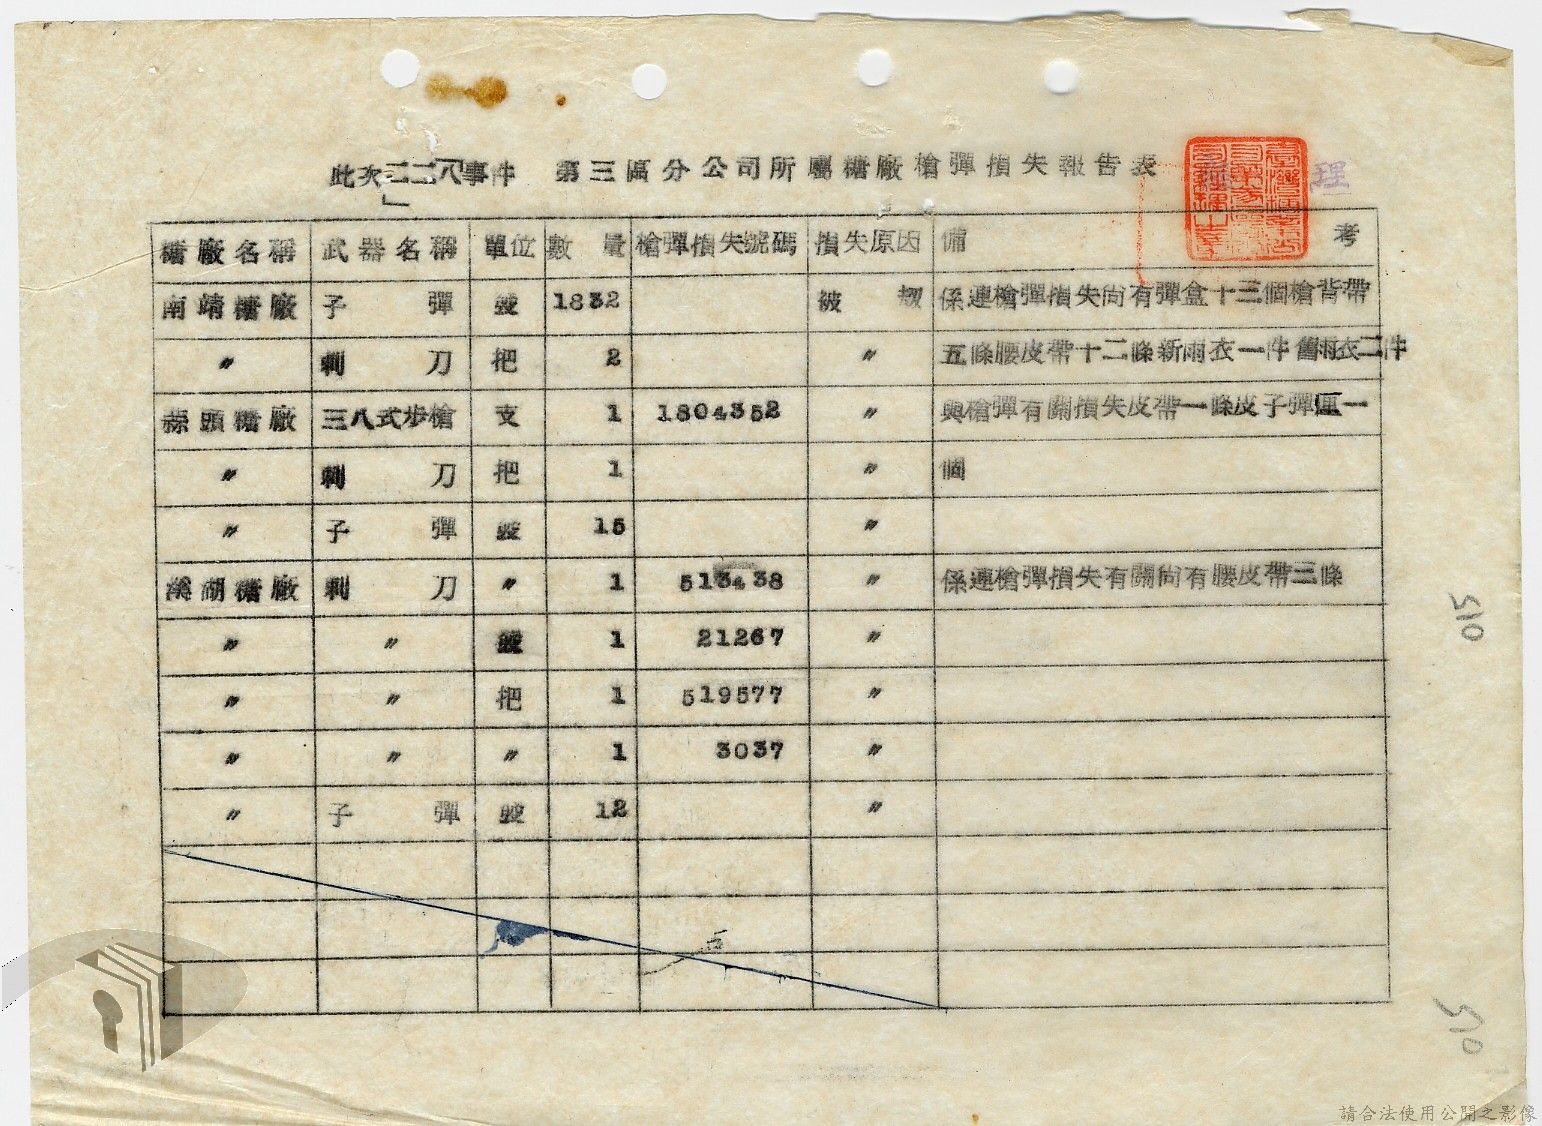 此次「二二八」事件　第三區分公司所屬糖廠槍彈損失報告表
理
糖廠名稱 武器名稱 單位 數量 槍彈損失號碼 損失原因 備考
南靖糖廠 子彈 發 1832 被刼 係連槍彈損失尚有彈盒十三個槍背帶
〃 刺刀 把 2 〃 五條腰皮帶十二條新雨衣一件舊雨衣二件
蒜頭糖廠 三八式步槍 支 1 1804352 〃 與槍彈有關損失皮帶一條皮子彈匣一
〃 刺刀 把 1 〃 個
〃 子彈 發 15 〃
溪湖糖廠 刺刀 〃 1 513438 〃 係連槍彈損失有關尚有腰皮帶三條
〃 〃 1 21267 〃
〃 〃 把 1 519577 〃
〃 〃 〃 1 3037 〃
〃 子彈 發 12 〃
510
510
請合法使用公開之影像